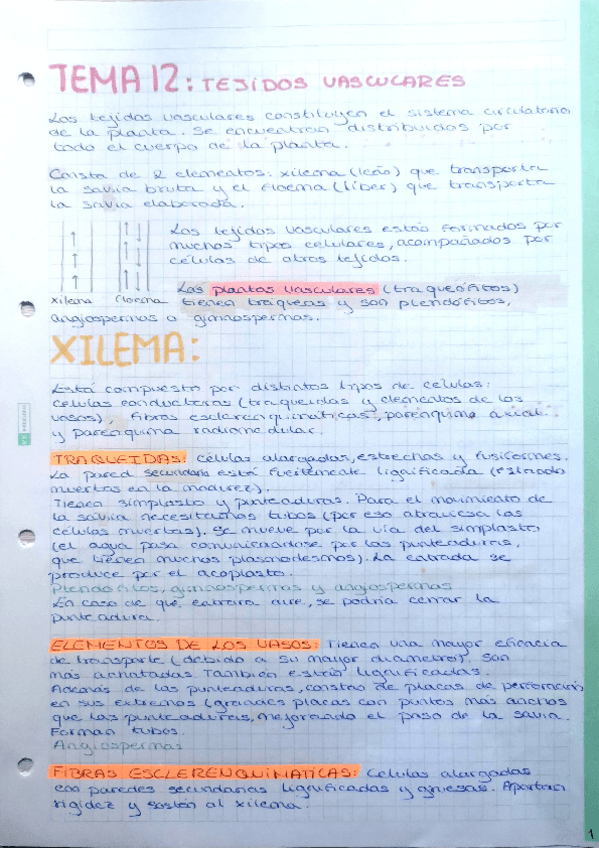 TEMA 12: TEJIDOS VASCULARES
Los tejidos vasculares constituyen el sistema circulatorio
de la planta. Se encuentran distribuidos por
todo el cuerpo de la planta.
Consta de 2 elementos: xilema (leño) que transporta
la savia bruta y el floema (líber) que transporta
la savia elaborada.
Los tejidos vasculares están formados por
muchos tipos celulares, acompañados por
células de otros tejidos.
Las plantas vasculares (traqueófitos)
xilema floema tienen traqueas y son pteridófitos,
angiospermas o gimnospermas.
XILEMA:
Está compuesto por distintos tipos de células:
células conductoras (traqueidas y elementos de los
vasos), fibras esclerenquimáticas, parénquima axial
y parénquima radiomedular.
TRAQUEIDAS: células alargadas, estrechas y fusiformes.
La pared secundaria está fuertemente lignificada (estando
muertas en la madurez).
Tienen simplasto y punteaduras. Para el movimiento de
la savia necesitamos tubos (por eso atraviesa las
células muertas). Se mueve por la vía del simplasto
(el agua pasa comunicandose por las punteaduras,
que tienen muchos plasmodesmos). La entrada se
produce por el acoplasto.
Pteridofitos, gimnospermas y angiospermas
En caso de que entrara aire, se podría cerrar la
punteadura.
ELEMENTOS DE LOS VASOS: Tienen una mayor eficacia
de transporte (debido a su mayor diametro). Son
más achatadas. También están lignificadas.
Además de las punteaduras, constan de placas de perforación
en sus extremos (grandes placas con puntos más anchos
que las punteaduras, mejorando el paso de la savia.
Forman tubos.
Angiospermas
FIBRAS ESCLERENQUIMATICAS: Células alargadas
con paredes secundarias lignificadas y gruesas. Aportan
rigidez y sostén al xilema.
1